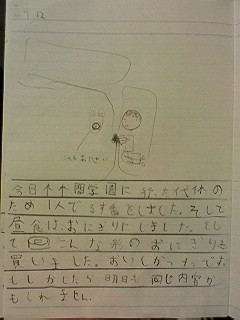 12
今日学園に行った代休の
ため1人でるす番をしました。そして
昼食はおにぎりにしました。そし
てこんな形のおにぎりも
買いました。おいしかったです。
もしかしたら明日も同じ内容か
もしれません。